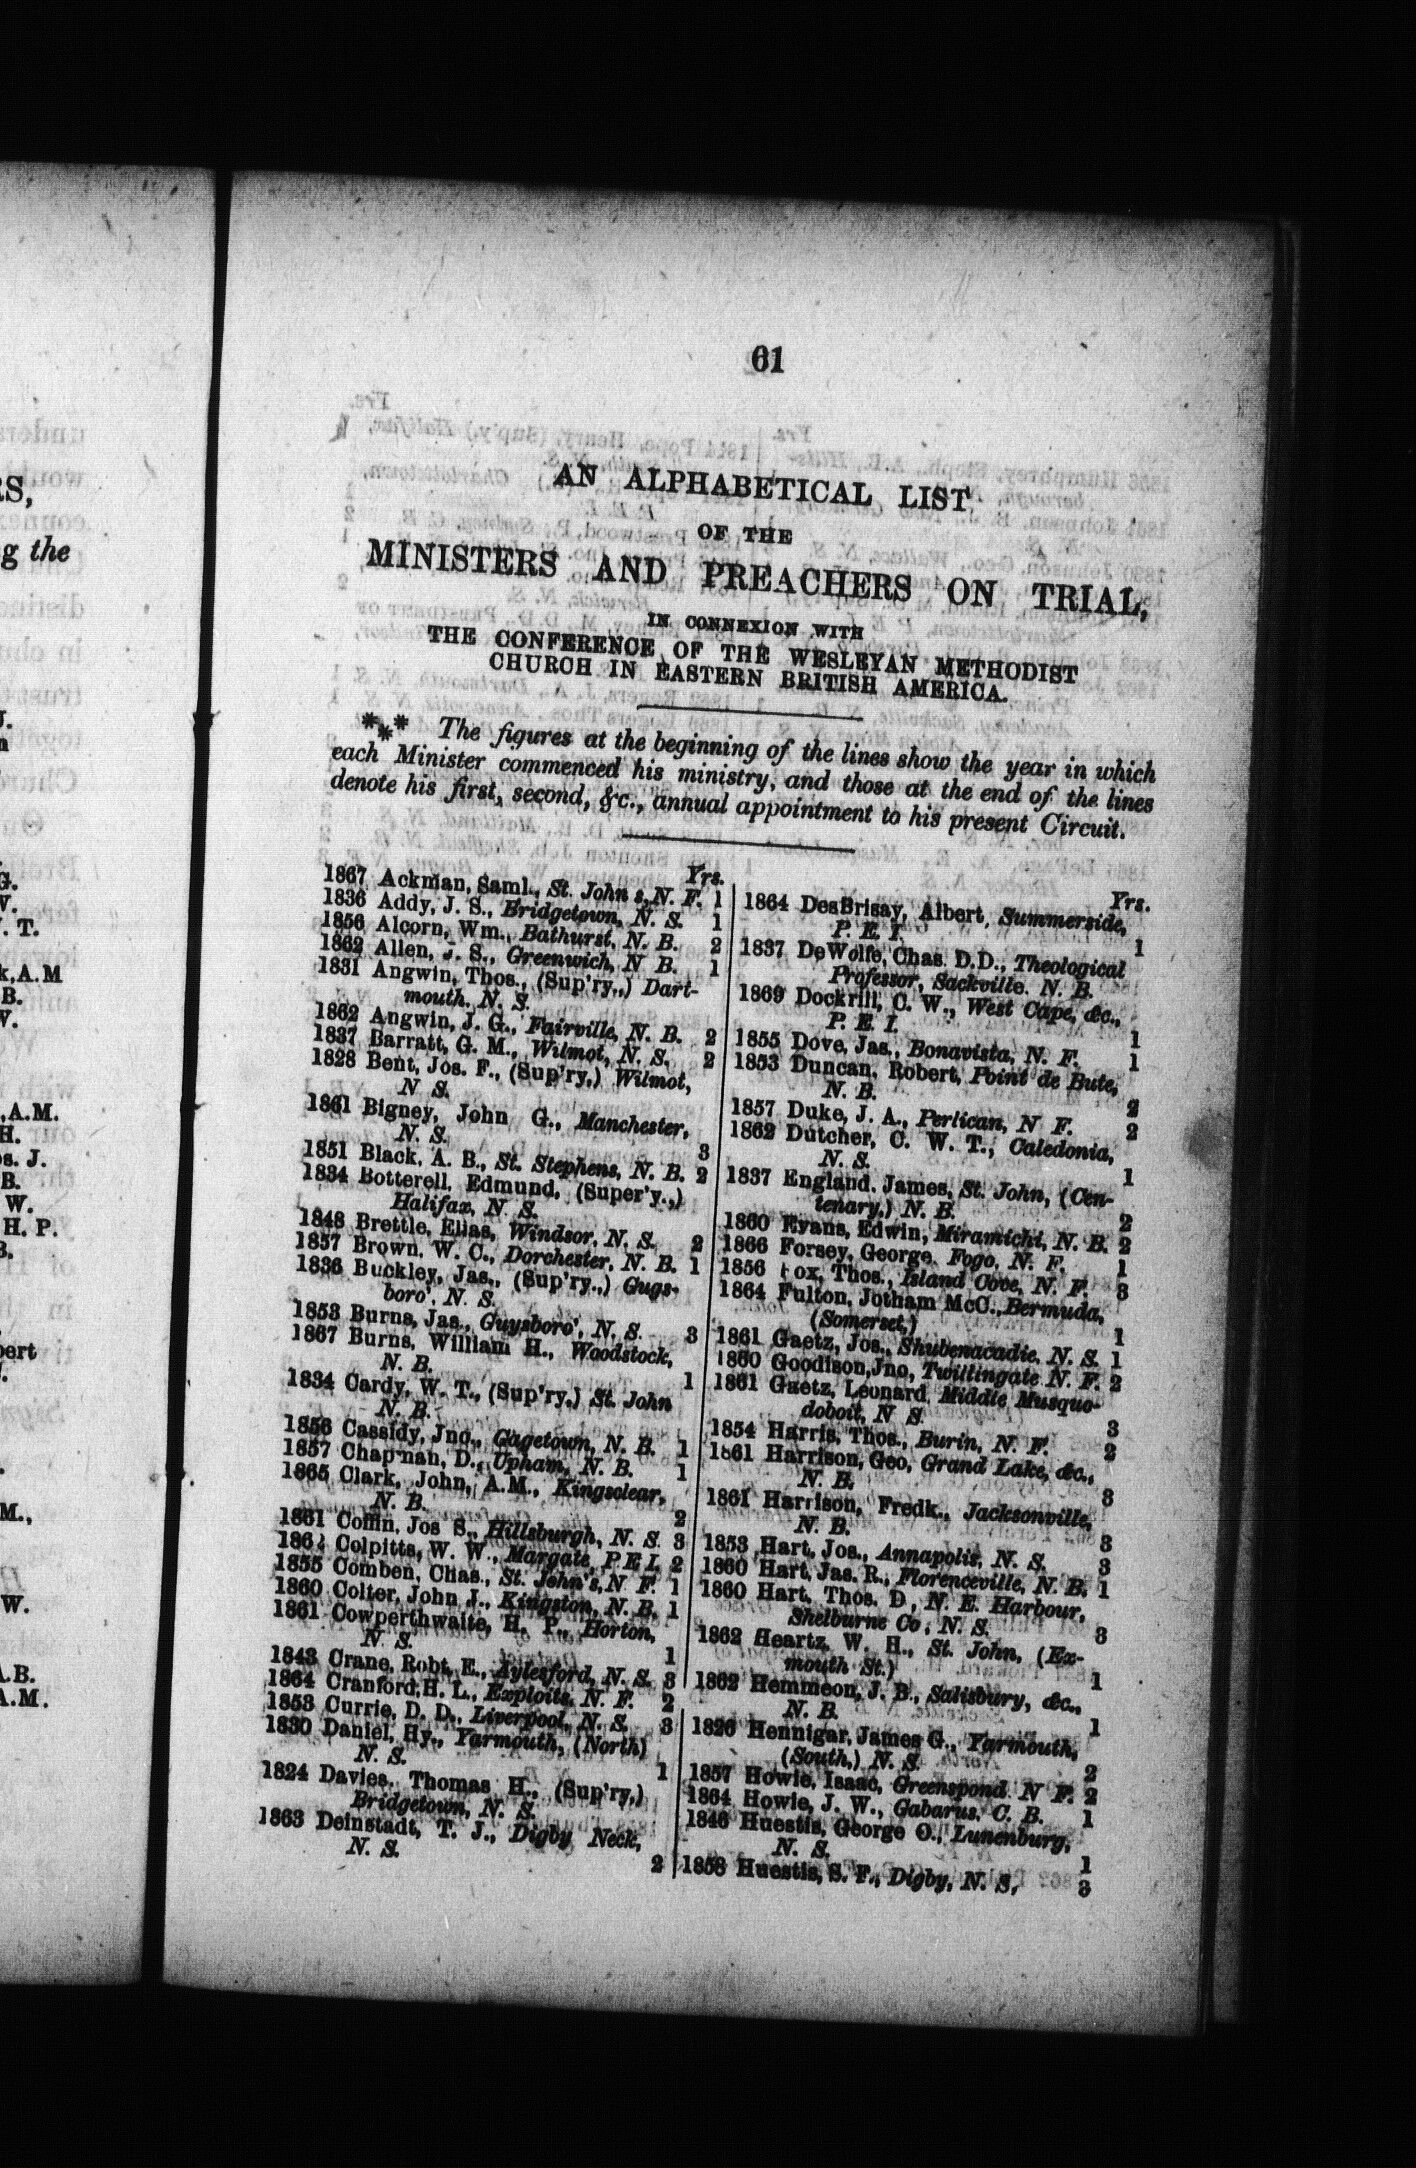 61
AN ALPHABETICAL LIST
OF THE
MINISTERS AND PREACHERS ON TRIAL,
IN CONNEXION WITH
THE CONFERENCE OF THE WESLEYAN METHODIST
CHURCH IN EASTERN BRITISH AMERICA.
*** The figures at the beginning of the lines show the year in which
each Minister commenced his ministry, and those at the end of the lines
denote his first, second, &c., annual appointment to his present Circuit.
Yrs.
1867 Ackman, Saml., St. John s, N. F. 1
1836 Addy, J. S., Bridgetown, N. S. 1
1856 Alcorn, Wm., Bathurst, N. B. 2
1862 Allen, J. S., Greenwich, N B. 1
1831 Angwin, Thos., (Sup'ry.,) Dart-
mouth, N. S.
1862 Angwin, J. G., Fairville, N. B. 2
1837 Barratt, G. M., Wilmot, N. S. 2
1828 Bent, Jos. F., (Sup'ry,) Wilmot,
N S.
1861 Bigney, John G., Manchester,
N. S. 3
1851 Black, A. B., St. Stephens, N. B. 2
1834 Botterell, Edmund, (Super'y.,)
Halifax, N. S.
1848 Brettle, Elias, Windsor, N. S. 2
1857 Brown, W. C., Dorchester, N. B. 1
1836 Buckley, Jas., (Sup'ry.,) Gugs-
boro', N. S.
1853 Burns, Jas., Guysboro', N. S. 3
1867 Burns, William H., Woodstock,
N. B. 1
1834 Cardy, W. T., (Sup'ry.) St. John
N. B.
1856 Cassidy, Jno., Gagetown, N. B. 1
1857 Chapman, D., Upham, N. B. 1
1865 Clark, John, A.M., Kingsclear,
N. B. 2
1861 Coffin, Jos S., Hillsburgh, N. S. 3
186 Colpitts, W. W., Margate, P. E I. 2
1855 Comben, Chas., St. John's, N F. 1
1860 Colter, John J., Kingston, N. B. 1
1861 Cowperthwaite, H. P., Horton,
N. S. 1
1843 Crane, Robt. E., Aylesford, N. S. 3
1864 Cranford, H. L., Exploits, N. F. 2
1853 Currie, D. D., Liverpool, N. S. 3
1830 Daniel, Hy., Yarmouth, (North)
N. S. 1
1824 Davies, Thomas H., (Sup'ry,)
Bridgetown, N. S.
1863 Deinstadt, T. J., Digby Neck,
N. S. 2
Yrs.
1864 DesBrisay, Albert, Summerside,
P. E. I. 1
1837 DeWolfe, Chas. D.D., Theological
Professor, Sackville. N. B.
1869 Dockrill, C. W., West Cape, &c.,
P. E. I. 1
1855 Dove, Jas., Bonavista, N. F. 1
1853 Duncan, Robert, Point de Bute,
N. B. 2
1857 Duke, J. A., Perlican, N F. 2
1862 Dutcher, C. W. T., Caledonia,
N. S. 1
1837 England, James, St. John, (Cen-
tenary,) N. B. 2
1860 Evans, Edwin, Miramichi, N. B. 2
1866 Forsey, George, Fogo, N. F. 1
1856 Fox, Thos., Island Cove, N. F. 3
1864 Fulton, Jotham McC., Bermuda,
(Somerset,) 1
1861 Gaetz, Jos., Shubenacadie, N. S. 1
1860 Goodison, Jno, Twillingate N. F. 2
1861 Gaetz, Leonard, Middle Musquo-
doboit, N S. 3
1854 Harris, Thos., Burin, N. F. 2
1861 Harrison, Geo, Grand Lake, &c.,
N. B. 3
1861 Harrison, Fredk., Jacksonville,
N. B. 3
1853 Hart, Jos., Annapolis, N. S. 3
1860 Hart, Jas. R., Florenceville, N. B. 1
1860 Hart, Thos. D., N. E. Harbour,
Shelburne Co, N. S. 3
1862 Heartz, W. H., St. John, (Ex-
mouth St.) 1
1862 Hemmeon, J. B., Salisbury, &c.,
N. B. 1
1826 Hennigar, James G., Yarmouth,
(South,) N. S. 2
1857 Howie, Isaac, Greenspond N F. 2
1864 Howie, J. W., Gabarus. C. B. 1
1846 Huestis, George O., Lunenburg,
N. S. 1
1858 Huestis, S. F., Digby, N. S, 3